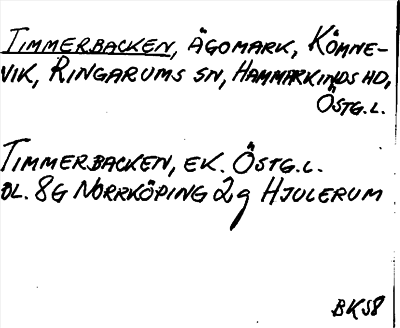 TIMMERBACKEN, ÄGOMARK, KÖMNE-
VIK, RINGARUMS SN, HAMMARKINDS HD,
ÖSTG.L.
TIMMERBACKEN, EK. ÖSTG.L.
BL. 8G NORRKÖPING 2g HJULERUM
BK58